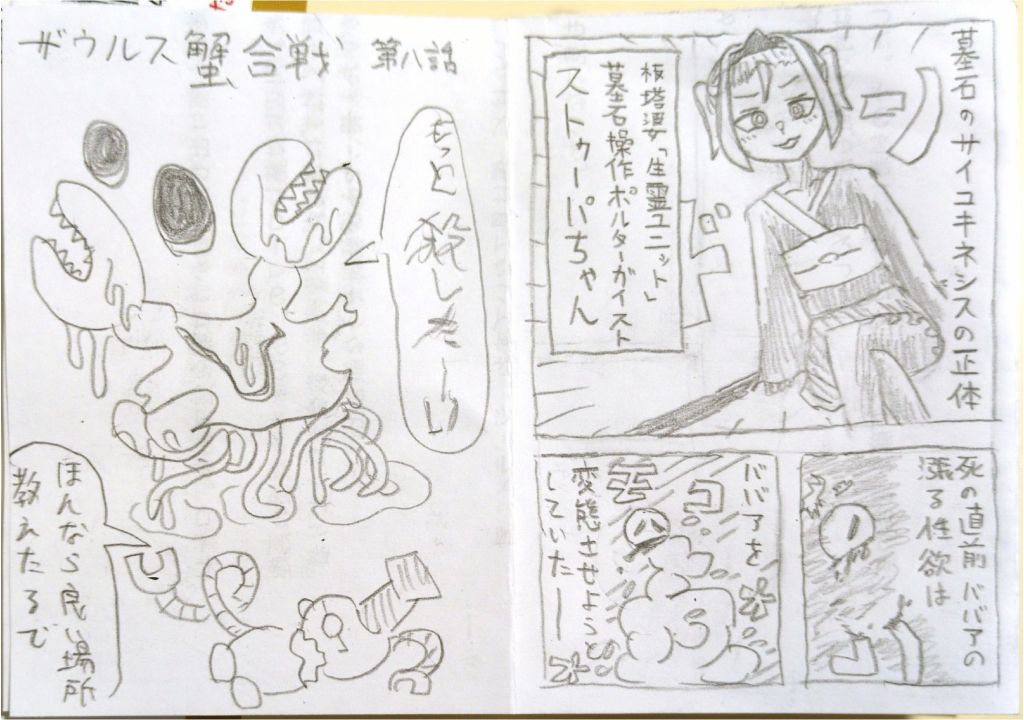 墓石のサイコキネシスの正体
板塔婆「生霊ユニット」
墓石操作ポルターガイスト
ストゥーパちゃん
ドーン
死の直前ババアの
漲る性欲は
ババアを
変態させようと
していた―
ザウルス蟹合戦 第八話
もっと殺したーい
ほんなら良い場所
教えたるで